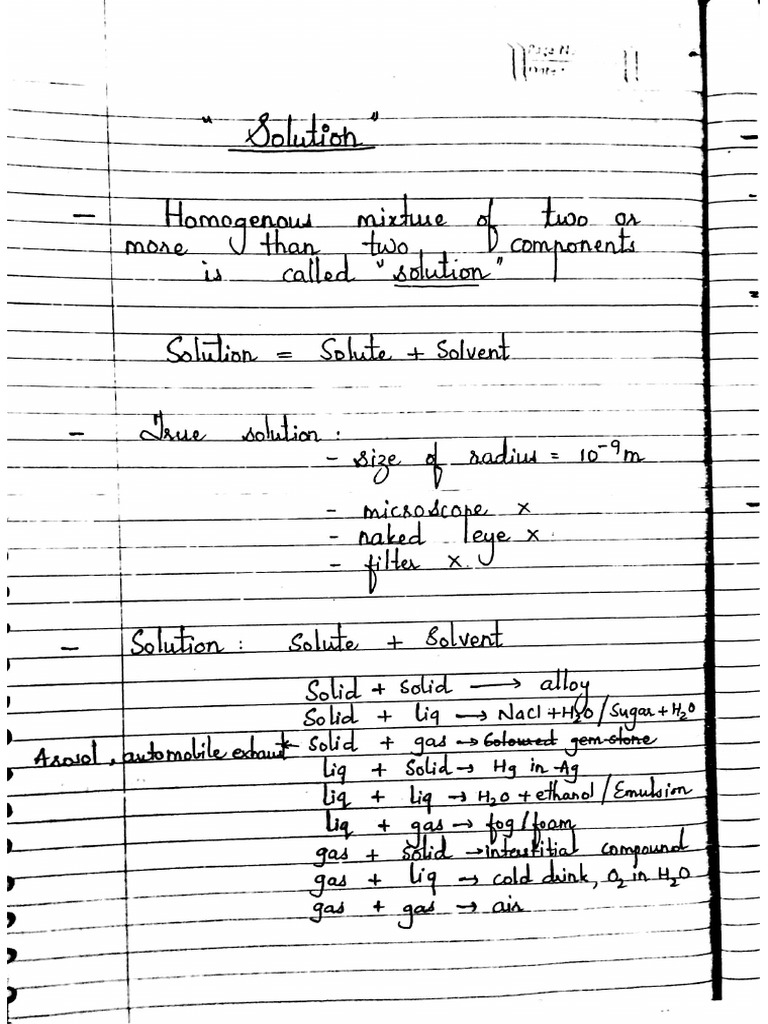 Page No.
Date:
"Solution"
- Homogenous mixture of two or
more than two components
is called "solution"
Solution = Solute + Solvent
- True solution :
- size of radius = 10⁻⁹ m
- microscope ×
- naked eye ×
- filter ×
- Solution : Solute + Solvent
Solid + Solid → alloy
Solid + liq → NaCl + H₂O / Sugar + H₂O
Arosol, automobile exhaust ← Solid + gas → Coloured gem stone
liq + Solid → Hg in Ag
liq + liq → H₂O + ethanol / Emulsion
liq + gas → fog / foam
gas + Solid → interstitial compound
gas + liq → cold drink, O₂ in H₂O
gas + gas → air